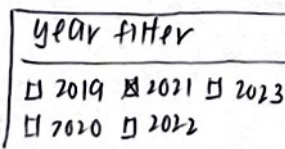 year filter
☐ 2019 ☒ 2021 ☐ 2023
☐ 2020 ☐ 2022